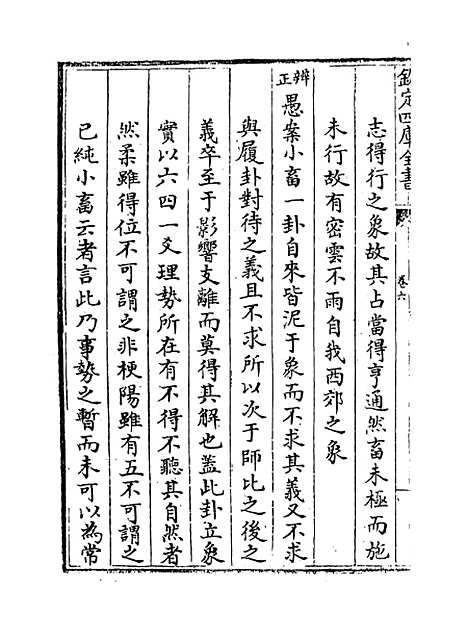 欽定四庫全書
卷六
志得行之象故其占當得亨通然畜未極而施
未行故有密雲不雨自我西郊之象
辨正愚案小畜一卦自來皆泥于象而不求其義又不求
與履卦對待之義且不求所以次于師比之後之
義卒至于影響支離而莫得其解也蓋此卦立象
實以六四一爻理勢所在有不得不聽其自然者
然柔雖得位不可謂之非梗陽雖有五不可謂之
已純小畜云者言此乃事勢之暫而未可以為常